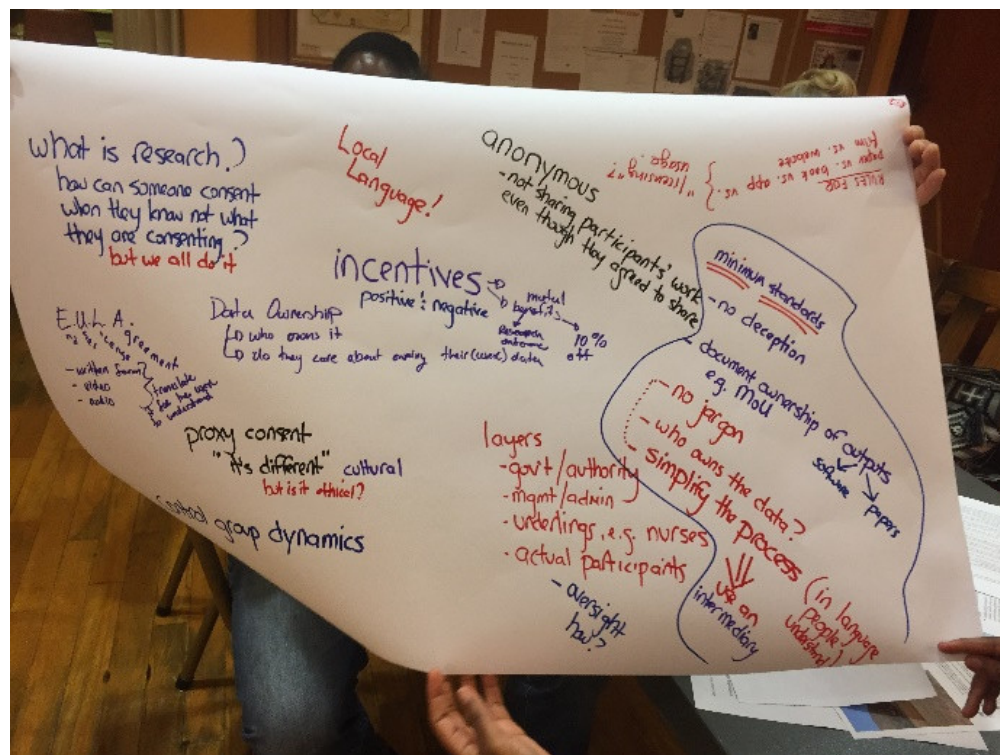 what is research?
how can someone consent
when they know not what
they are consenting?
but we all do it
Local
Language!
anonymous
- not sharing participants' work
even though they agreed to share
"licensing"?
usage?
} vs.
RULES FOR
paper vs. book vs. app
film vs. website
incentives
positive & negative
benefits
Research
outcome
10%
off
Data Ownership
who owns it
do they care about owning their (users) data
E.U.L.A.
- written form
- video
- audio
translate
understand
proxy consent
"it's different" cultural
but is it ethical?
group dynamics
layers
- gov't/authority
- mgmt/admin
- underlings, e.g. nurses
- actual participants
- oversight
how?
minimum standards
- no deception
- document ownership of outputs
e.g. MoU
software
papers
- no jargon
- who owns the data?
- simplify the process (in language
people
understand)
use an
intermediary